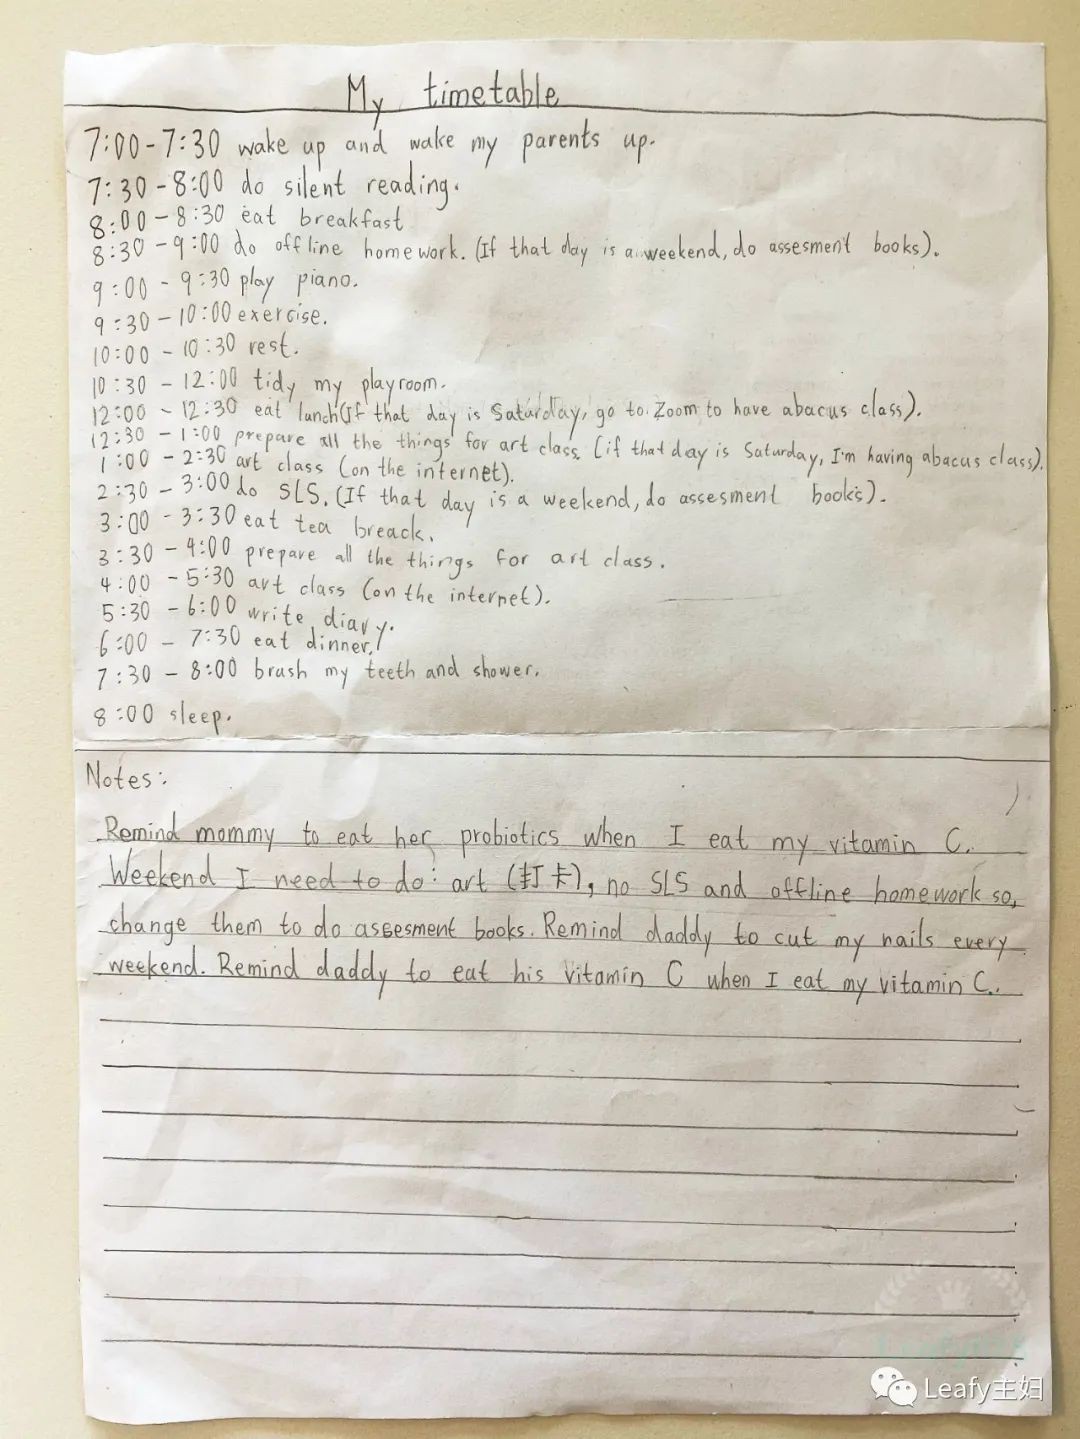 My timetable
7:00-7:30 wake up and wake my parents up.
7:30-8:00 do silent reading.
8:00-8:30 eat breakfast
8:30-9:00 do offline homework. (If that day is a weekend, do assesment books).
9:00 - 9:30 play piano.
9:30-10:00 exercise.
10:00 - 10:30 rest.
10:30 - 12:00 tidy my playroom.
12:00 - 12:30 eat lunch(If that day is Saturday, go to Zoom to have abacus class).
12:30 - 1:00 prepare all the things for art class. (if that day is Saturday, I'm having abacus class).
1:00 - 2:30 art class (on the internet).
2:30 - 3:00 do SLS. (If that day is a weekend, do assesment books).
3:00 - 3:30 eat tea breack.
3:30 - 4:00 prepare all the things for art class.
4:00 - 5:30 art class (on the internet).
5:30 - 6:00 write diary.
6:00 - 7:30 eat dinner.
7:30 - 8:00 brush my teeth and shower.
8:00 sleep.
Notes:
Remind mommy to eat her probiotics when I eat my vitamin C.
Weekend I need to do: art (打卡), no SLS and offline homework so,
change them to do assesment books. Remind daddy to cut my nails every
weekend. Remind daddy to eat his vitamin C when I eat my vitamin C.
Leafy主妇